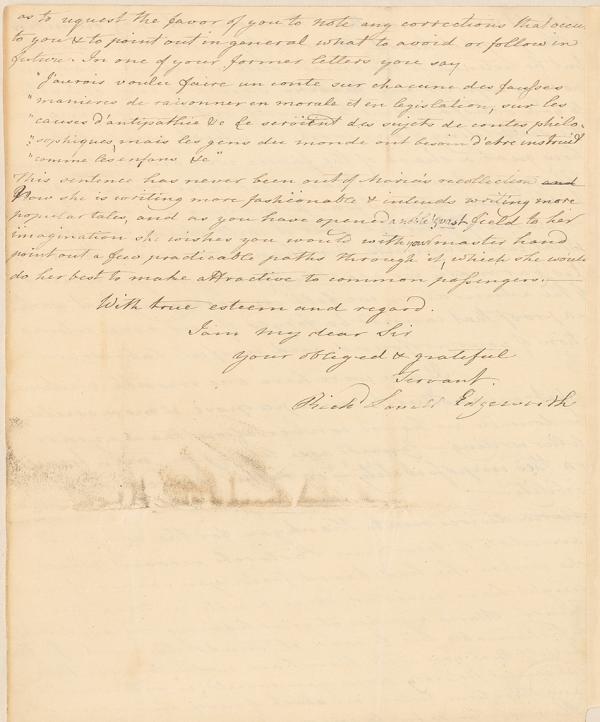 as to request the favor of you to note any corrections that occur
to you & to point out in general what to avoid or follow in
future. In one of your former letters you say
"J'aurois voulu faire un conte sur chacune des fausses
"manieres de raisonner en morale et en legislation, sur les
"causes d'antipathie &c Ce seroient des sujets de contes philo-
"sophiques, mais les gens du monde ont besoin d'etre instruits
"comme les enfans &c"
This sentence has never been out of Maria's recollection and
Now she is writing more fashionable & intends writing more
popular tales, and as you have opened a noble & vast field to her
imagination she wishes you would with your master hand
point out a few practicable paths through it, which she would
do her best to make attractive to common passengers.—
With true esteem and regard.
I am my dear Sir
your obliged & grateful
Servant.
Richd Lovell Edgeworth